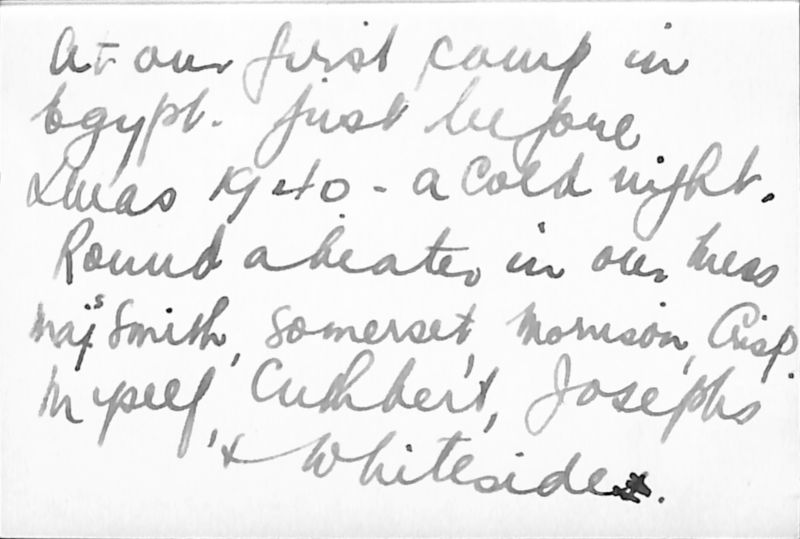 At our first camp in
Egypt. Just before
Xmas 1940 - a cold night.
Round a heater in our mess
Maj.s Smith, Somerset, Morrison, Crisp.
Myself, Cuthbert, Josephs
& Whiteside.